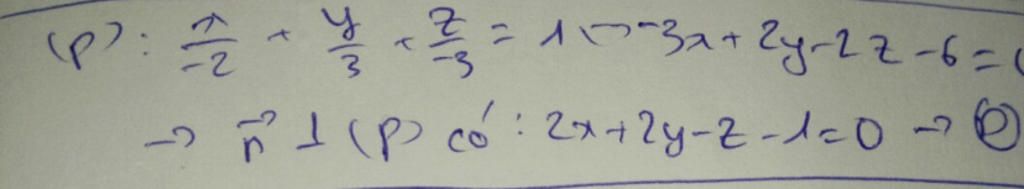 (P): x/-2 + y/3 + z/-3 = 1 <=> -3x + 2y - 2z - 6 =
→ n⃗ ⊥ (P) có: 2x + 2y - z - 1 = 0 → Ⓓ